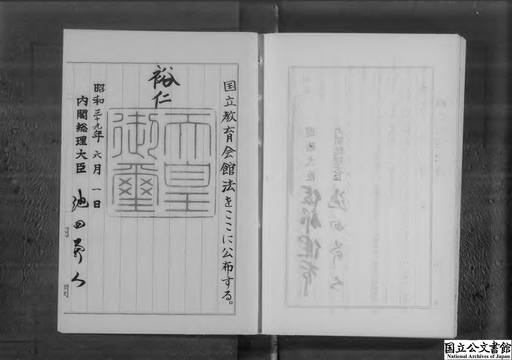 国立教育会館法をここに公布する。
裕仁
天皇御璽
昭和三十九年六月一日
内閣総理大臣 池田勇人
国立公文書館
National Archives of Japan